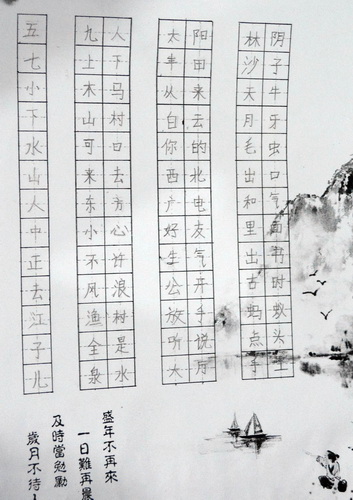 阴子牛牙虫口气面书时蚁头土
林沙天月毛出和里出古蚂点手
阳甲来云的北电友气开手说方
太丰从白你西产好生公放听大
人下马村口去方心许浪村是水
九上木山可来东小不风渔全泉
五七小下水山人中正去江子儿
盛年不再來
一日難再晨
及時當勉勵
歲月不待人